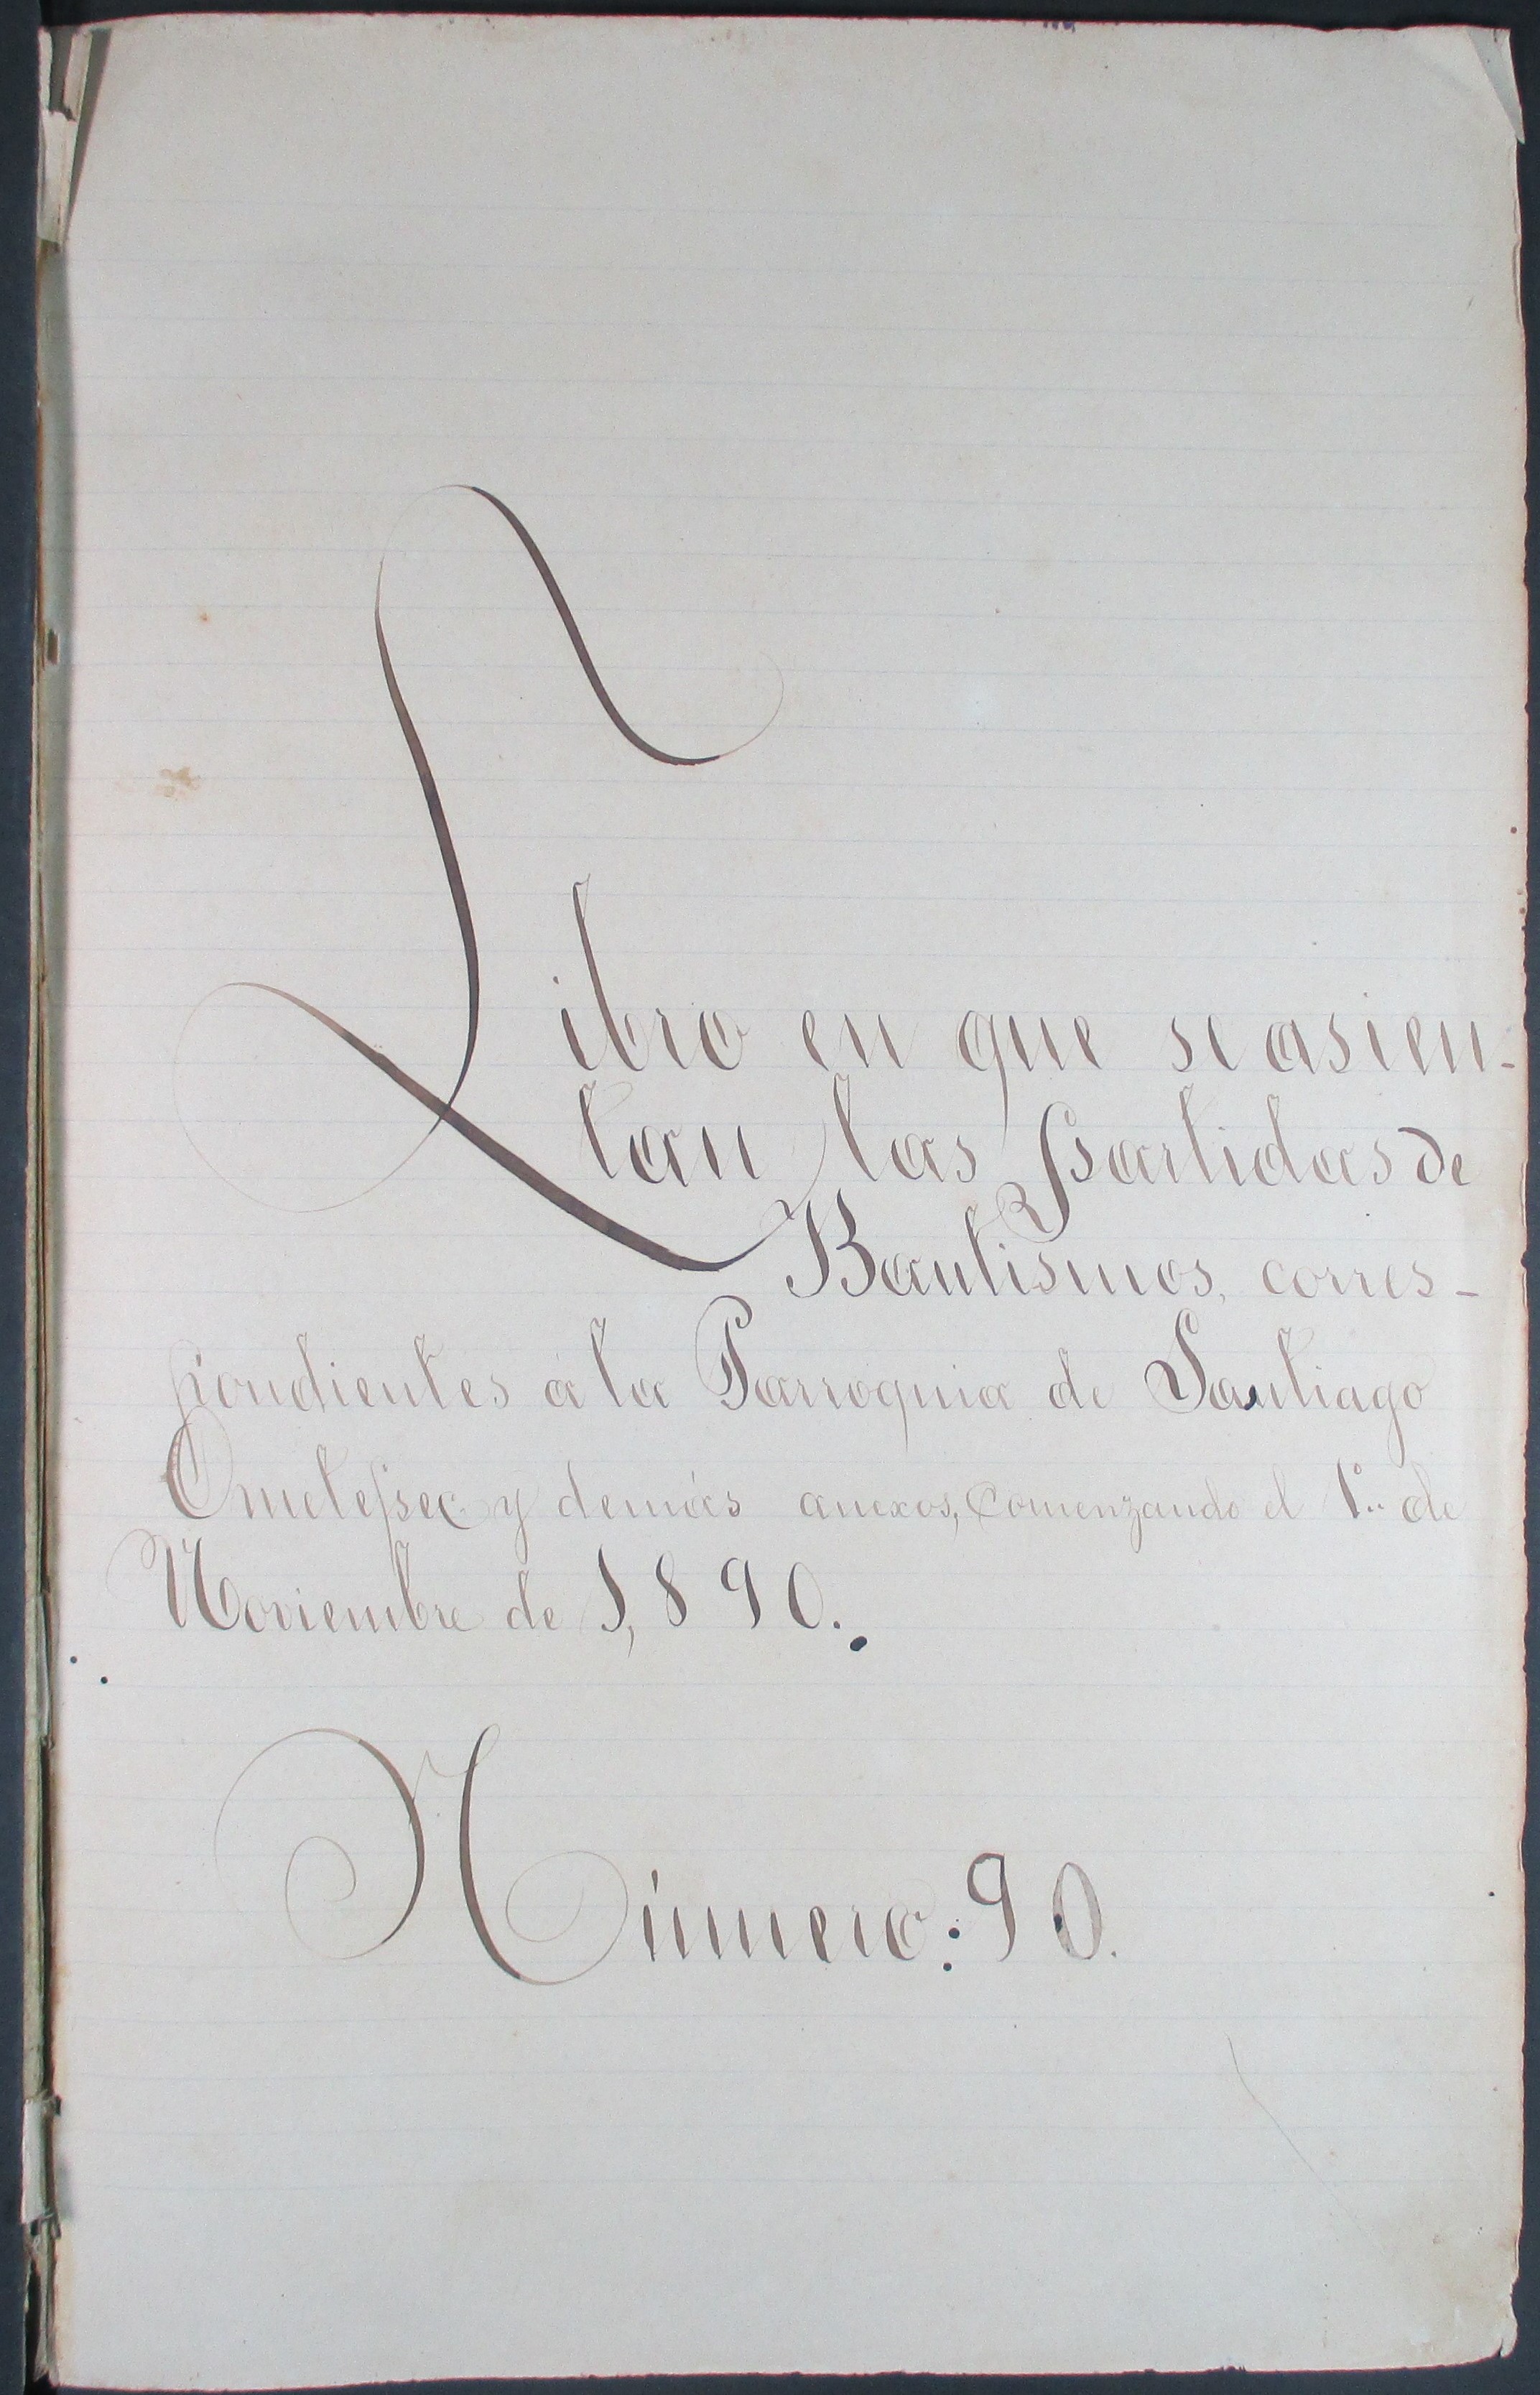 Libro en que se asien-
tan las partidas de
Bautismos, corres-
pondientes á la Parroquia de Santiago
Ometepec y demás anexos, comenzando el 1º de
Noviembre de 1,890.
Número: 90.